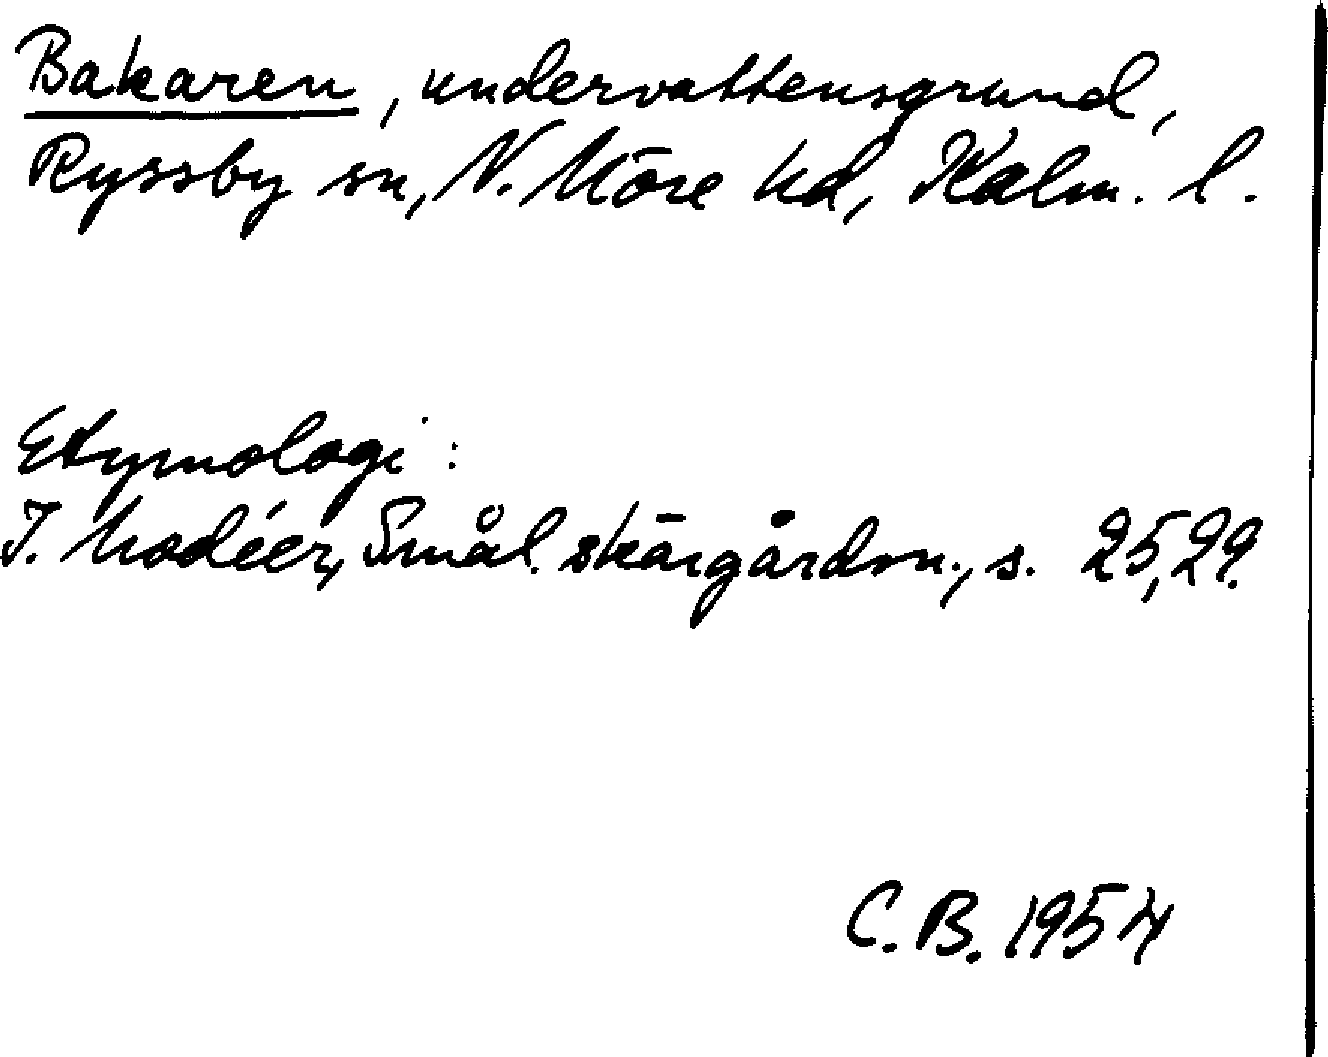 Bakaren, undervattensgrund,
Ryssby sn, N. Möre hd, Kalm. l.
Etymologi:
I. Modéer, Smål. skärgårdsn., s. 25, 29.
C.B. 1954